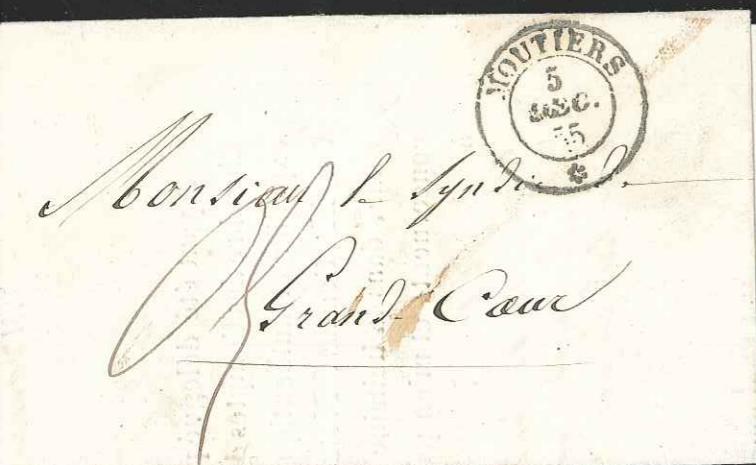 MOUTIERS
5
DEC.
55
Monsieur le Syndic de
Grand Cœur